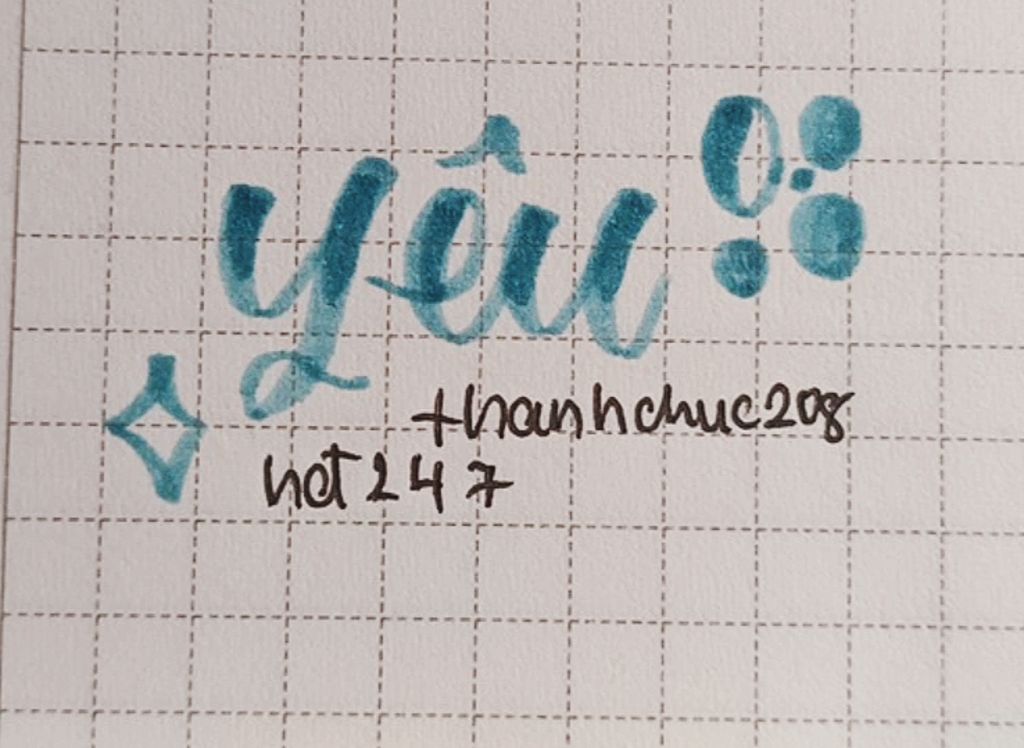 yêu
thanhchuc208
hot247